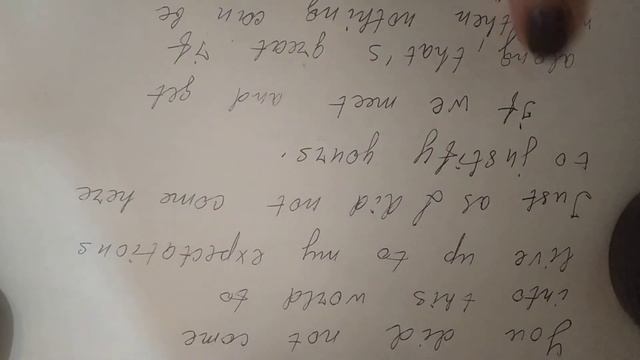 You did not come
into this world to
live up to my expectations
Just as I did not come here
to justify yours.
If we meet and get
along, that's great if
then nothing can be